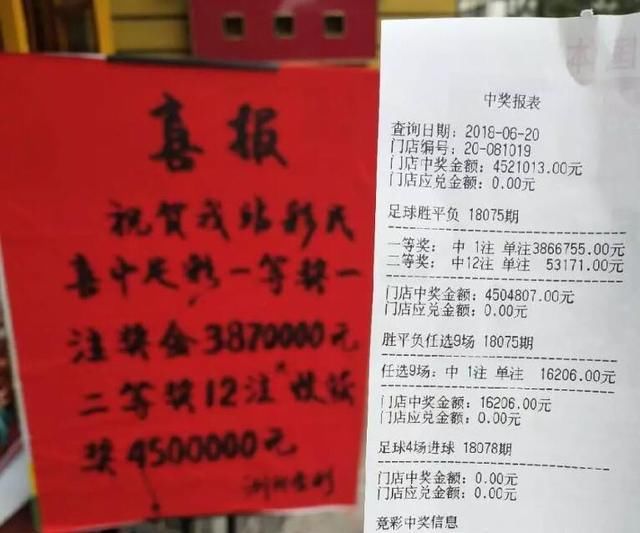 喜报
祝贺我站彩民
喜中足彩一等奖一
注奖金3870000元
二等奖12注
奖4500000元
中奖报表
查询日期: 2018-06-20
门店编号: 20-081019
门店中奖金额: 4521013.00元
门店应兑金额: 0.00元
足球胜平负 18075期
一等奖: 中 1注 单注3866755.00元
二等奖: 中12注 单注 53171.00元
门店中奖金额: 4504807.00元
门店应兑金额: 0.00元
胜平负任选9场 18075期
任选9场: 中 1注 单注 16206.00元
门店中奖金额: 16206.00元
门店应兑金额: 0.00元
足球4场进球 18078期
门店中奖金额: 0.00元
门店应兑金额: 0.00元
竞彩中奖信息